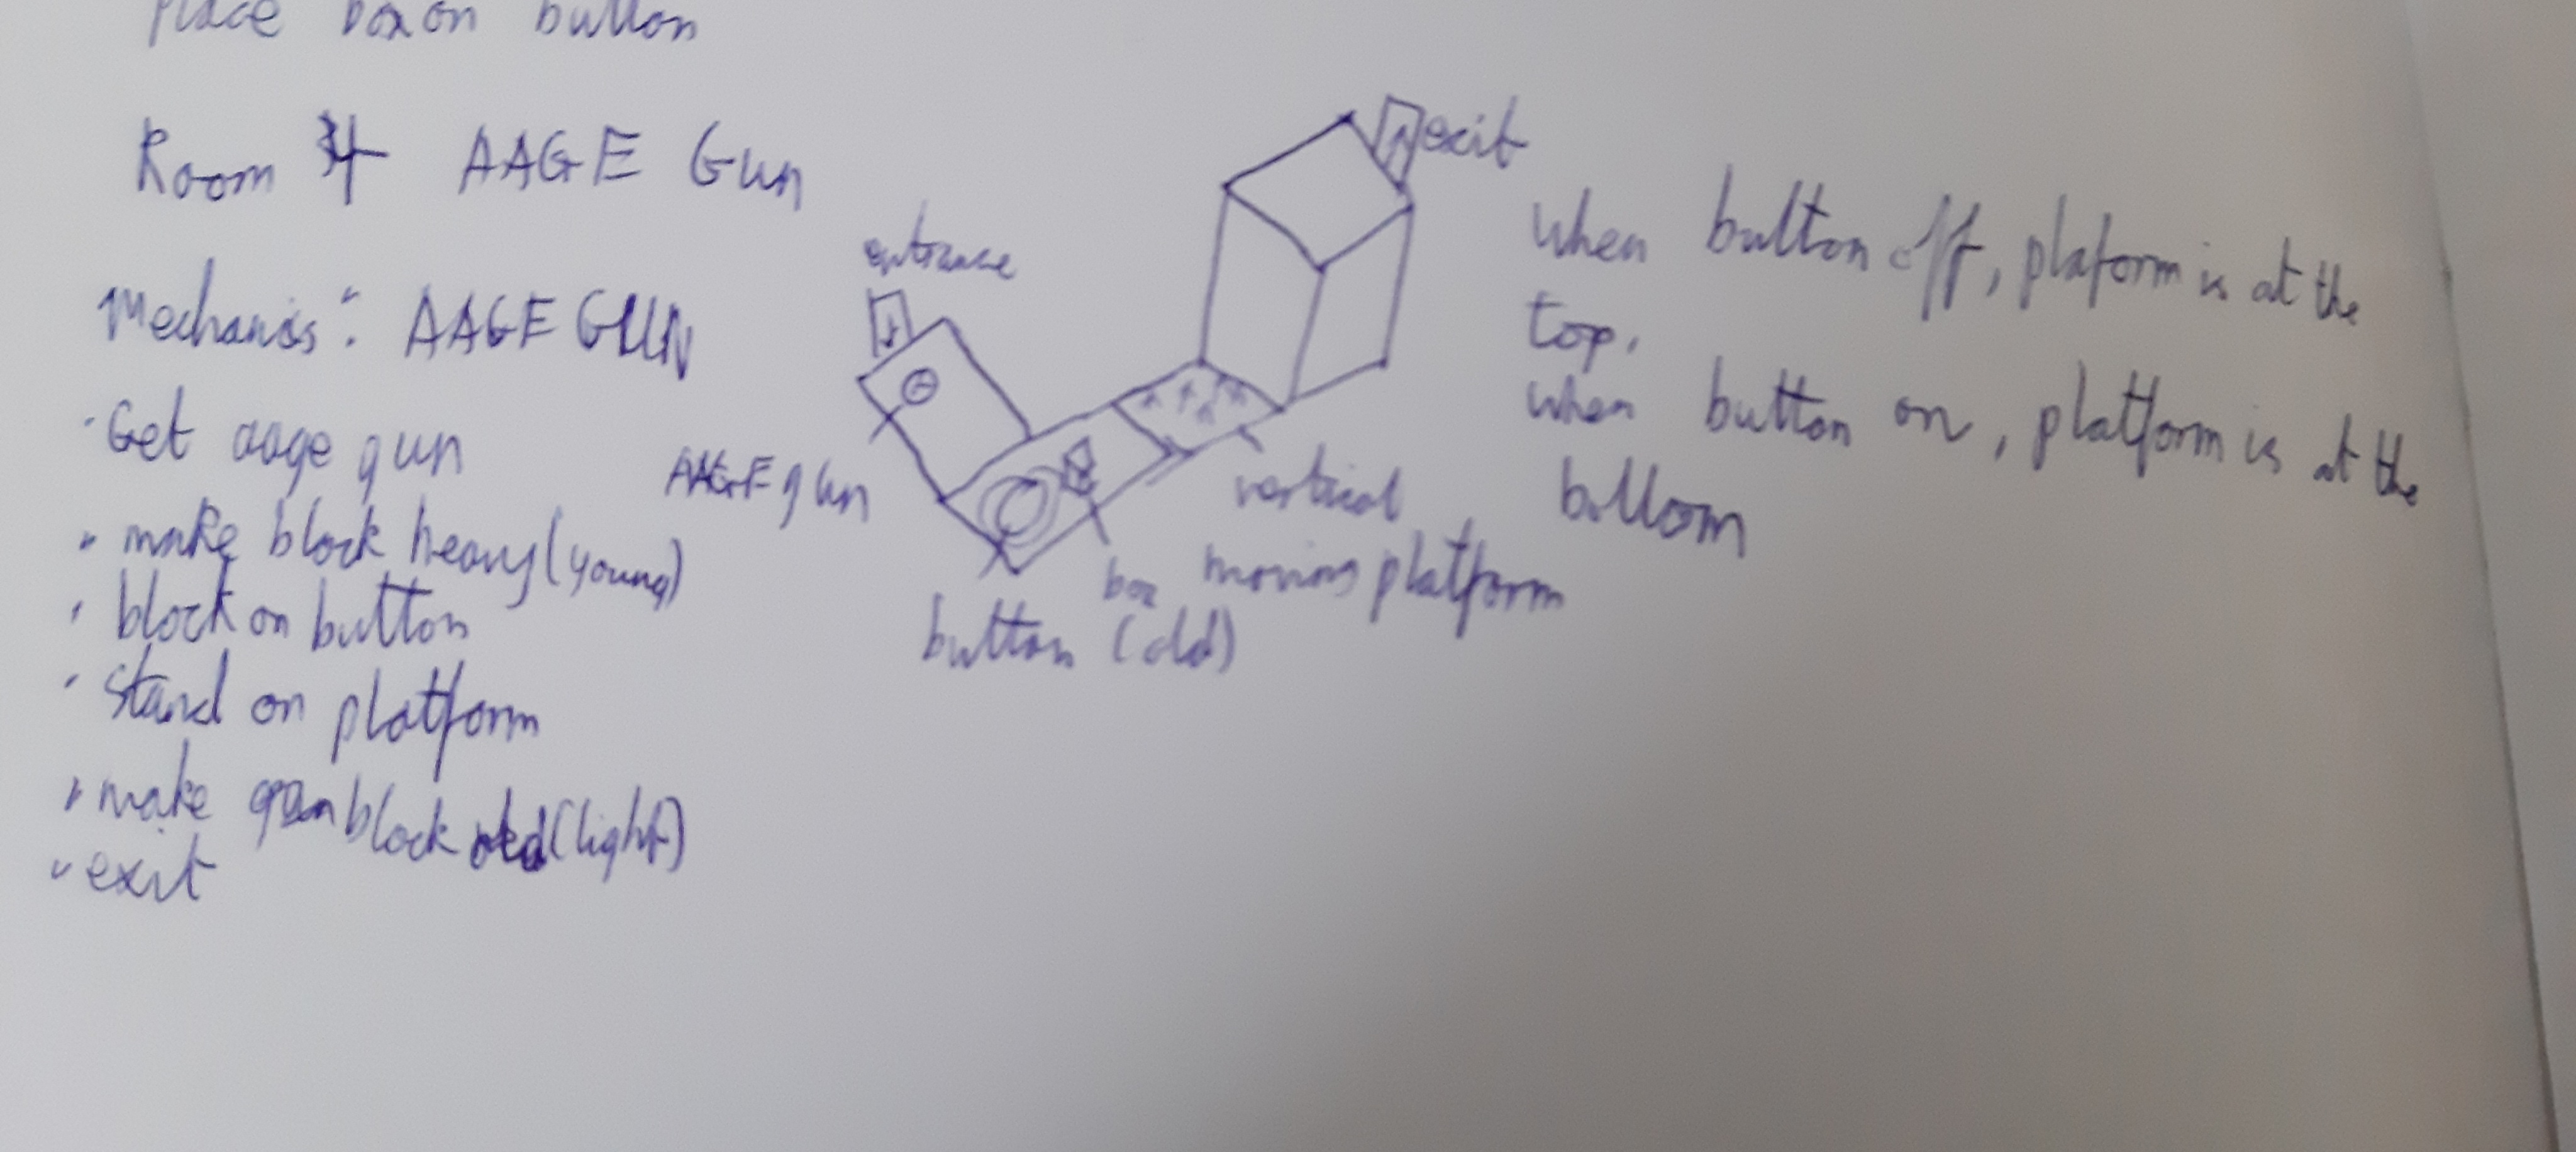 place box on button
Room 4 AAGE Gun
Mechanis: AAGE GUN
· Get aage gun
· make block heavy (young)
· block on button
· stand on platform
· make block old (light)
· exit
entrance
AAGE gun
button (old)
box
vertical
moving platform
exit
when button off, plaform is at the
top,
when button on, platform is at the
bottom